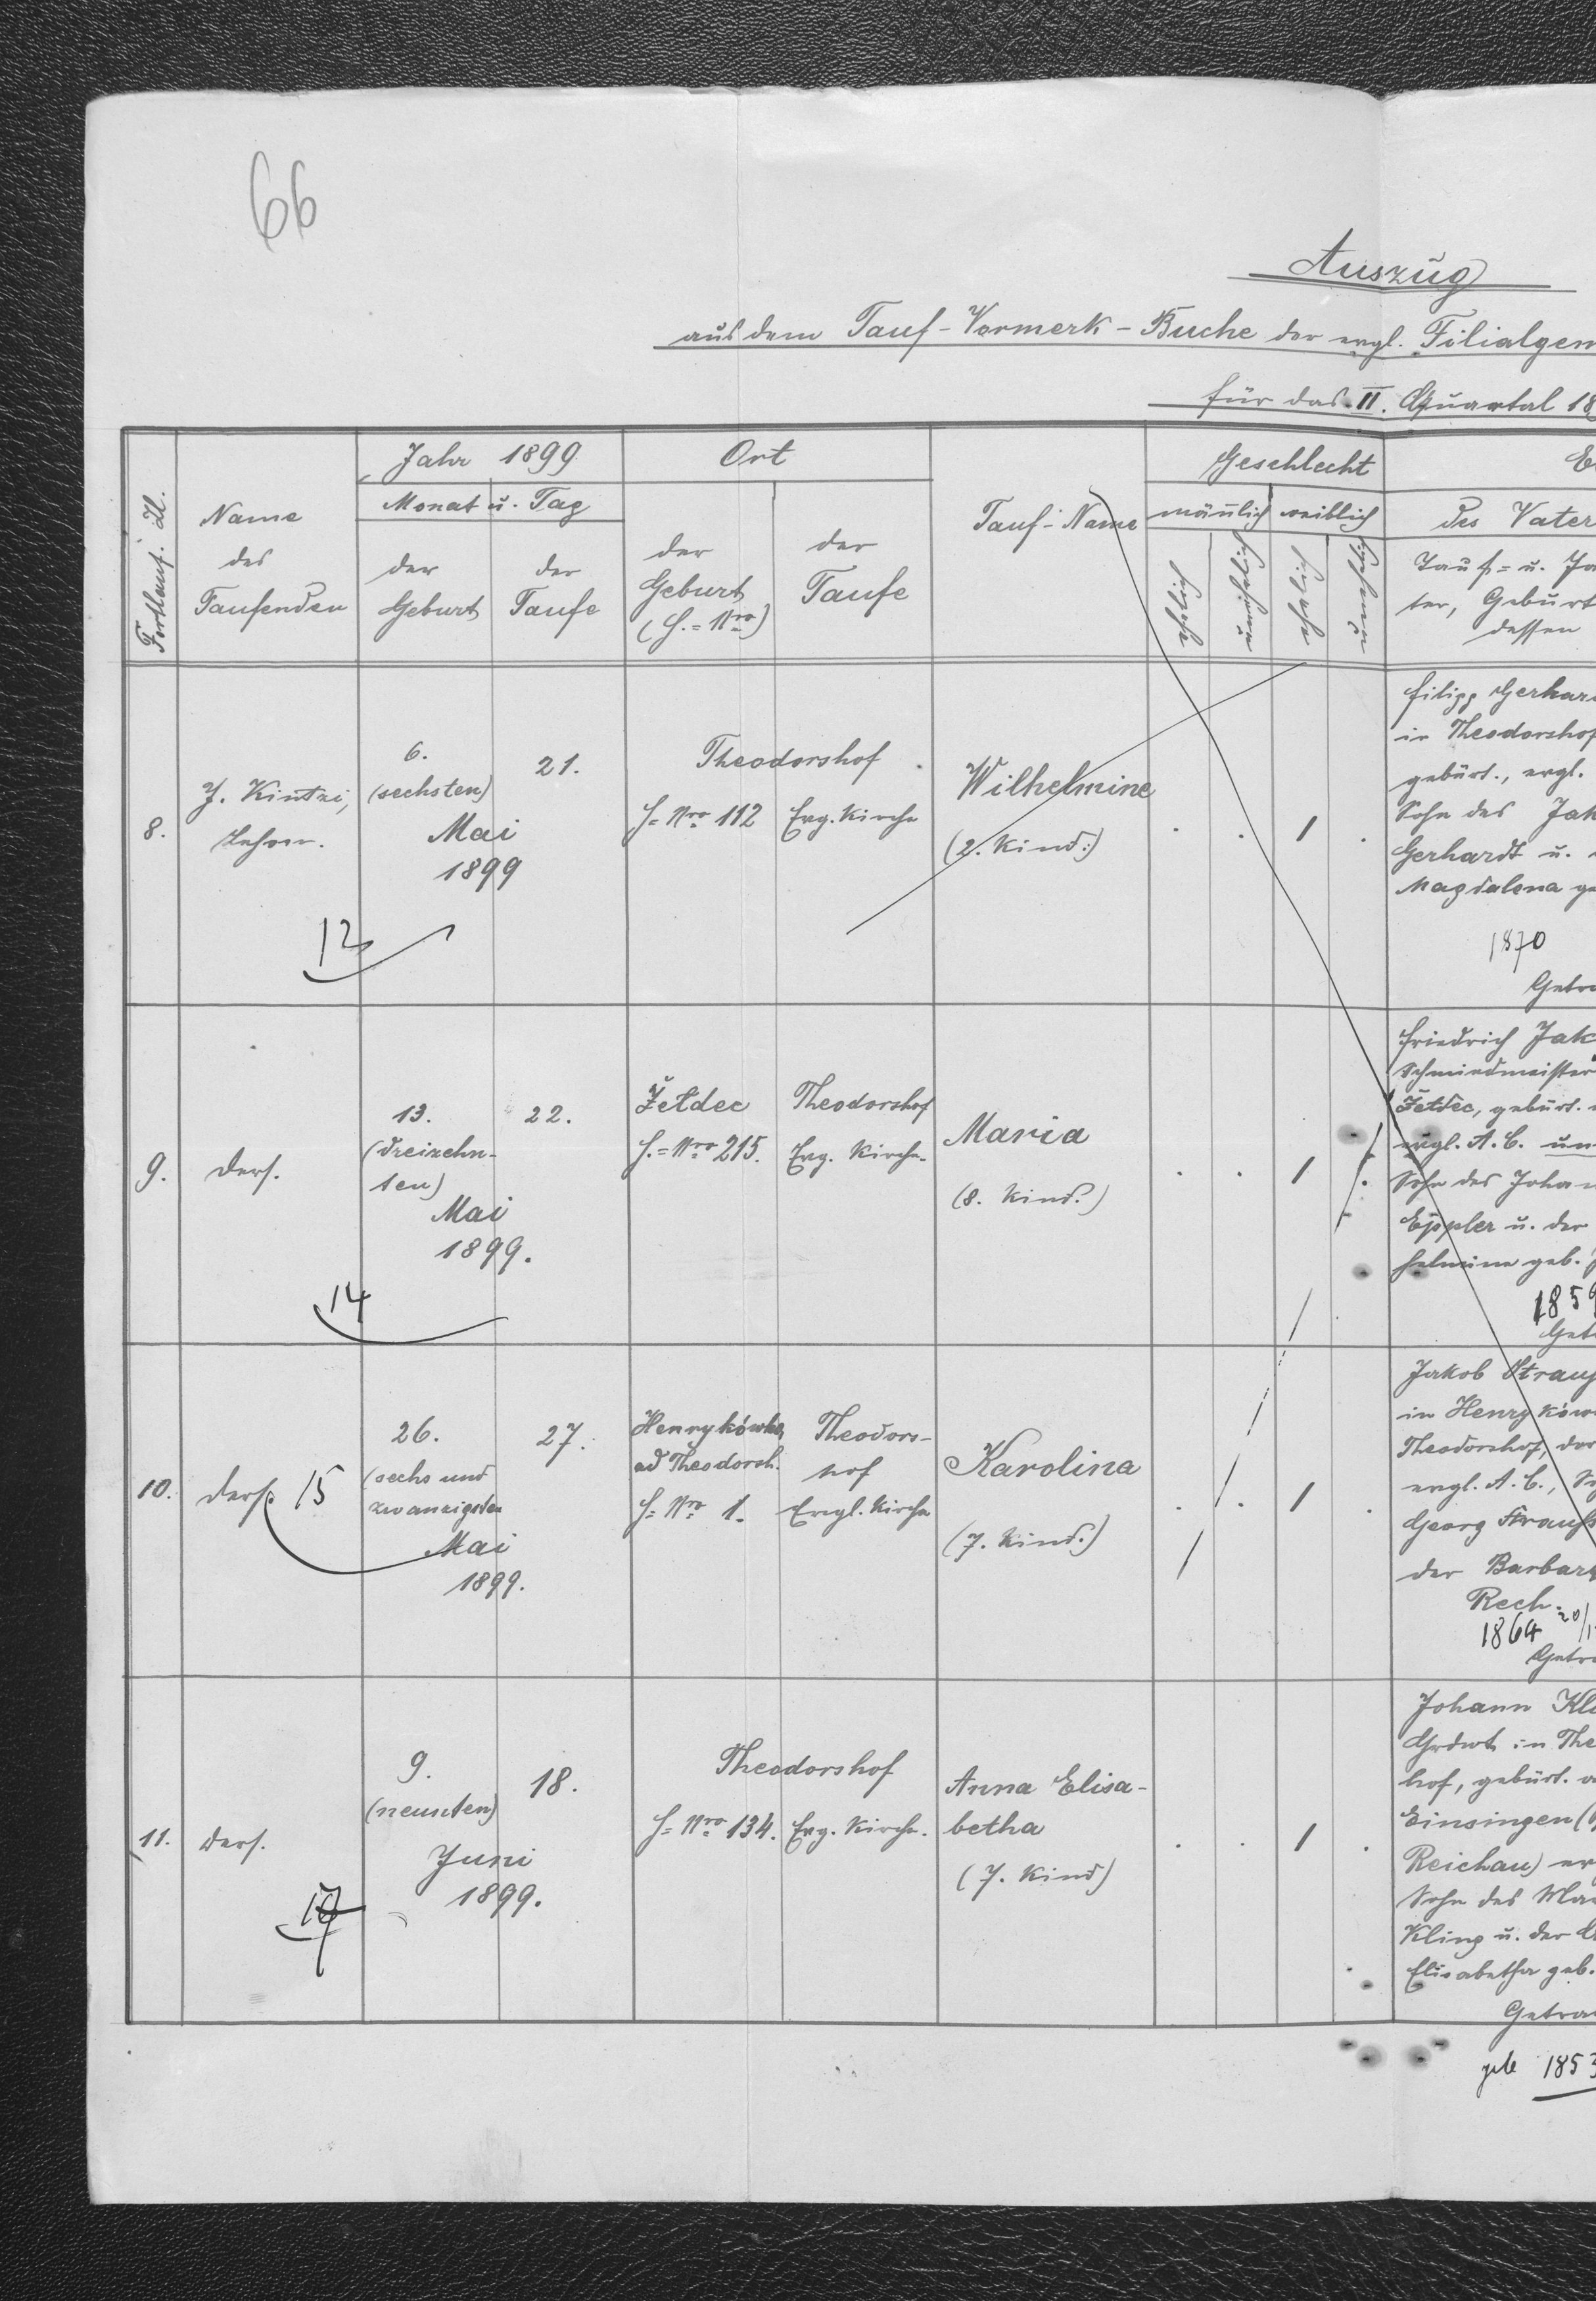 66
Auszug
aus dem Tauf-Vormerk-Buche der evgl. Filialgem
für das II. Quartal 18
Fortlauf. Zl.
Name
des
Taufenden
Jahr 1899
Monat u. Tag
der
Geburt
der
Taufe
Ort
der
Geburt
(H.=Nro)
der
Taufe
Tauf-Name
Geschlecht
mänlich
weiblich
des Vater
Tauf= u. Fa
ter, Geburt
dessen
8.
J. Kintzi,
Lehrer.
6.
(sechsten)
Mai
1899
21.
Theodorshof
H=Nro 112
Evg. Kirche
Wilhelmine
(2. Kind.)
1
Filipp Gerhar
in Theodorshof
gebürt., evgl.
Sohn des Jak
Gerhardt u.
Magdalena ge
1870
Getra
12
9.
ders.
13.
(dreizehn-
ten)
Mai
1899.
22.
Żetdec
H.=Nro 215.
Theodorshof
Evg. Kirche.
Maria
(8. Kind.)
1
Friedrich Jak
Schmiedmeister
Żetdec, gebürt.
evgl. A.C. un
Sohn des Johan
Eppler u. der
helmine geb.
1859
Getr
14
10.
ders.
15
26.
(sechs und
zwanzigsten
Mai
1899.
27.
Henrykówka
ad Theodorsh.
H=Nro 1.
Theodors-
hof
Evgl. Kirche
Karolina
(7. Kind.)
1
Jakob Strauß
in Henrykówk
Theodorshof, dor
evgl. A.C., So
Georg Strauß
der Barbara
Rech.
1864 20/1
Getra
11.
ders.
9.
(neunten)
Juni
1899.
18.
Theodorshof
H=Nro 134.
Evg. Kirche.
Anna Elisa-
betha
(7. Kind)
1
Johann Kli
Grdwt in The
hof, gebürt. a
Einsingen (
Reichau) ev
Sohn des Ma
Kling u. der
Elisabetha geb.
Getra
17
geb 1853